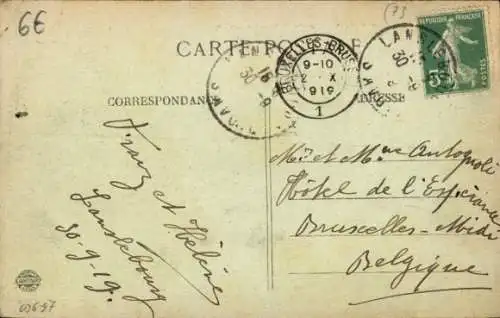 6€
(73
CARTE POSTALE
CORRESPONDANCE
ADRESSE
BRUXELLES-BRUSSEL
9-10
2 X
1919
1
16
30 -9
LANSLE
30
REPUBLIQUE FRANÇAISE
POSTES
Franz et Hélène
Lanslebourg
30-9-19.
Mr et Mme Antognoli
Hôtel de l'Espérance
Bruxelles-Midi
Belgique